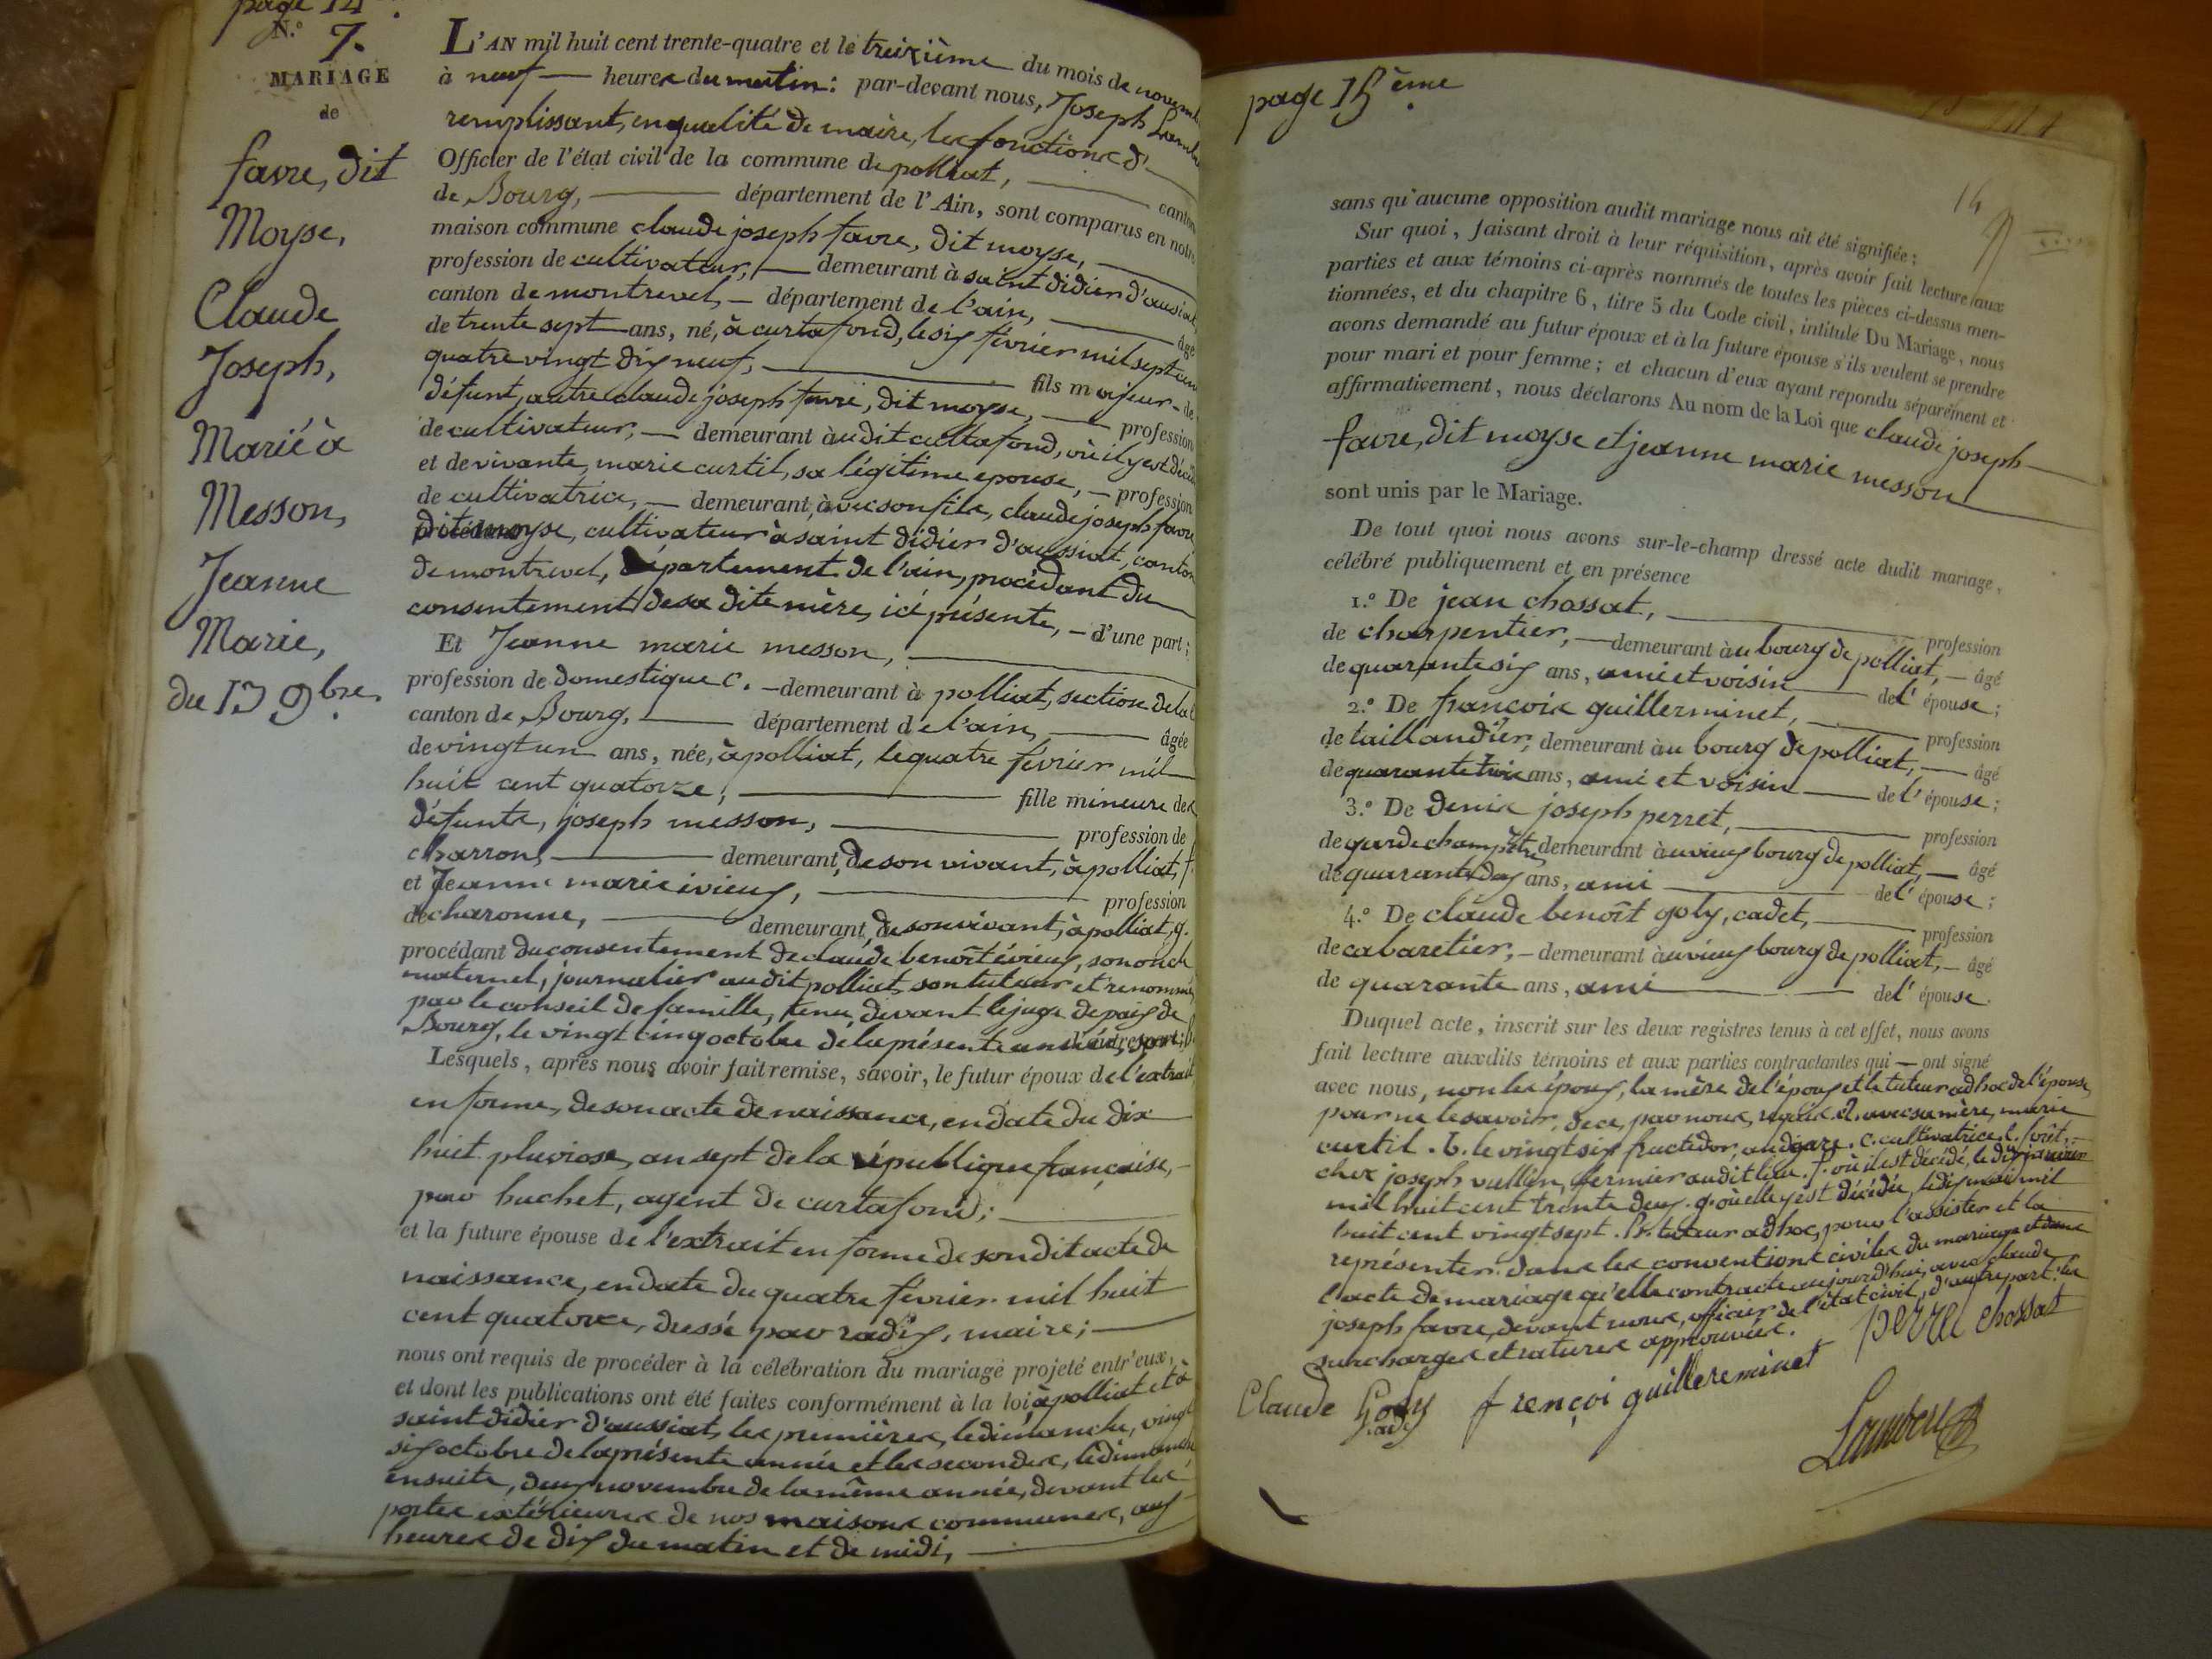 page 14
N.° 7.
MARIAGE
de
favre, dit
Moyse,
Claude
Joseph,
Marié à
Messon,
Jeanne
Marie,
du 13 9bre.
L'AN mil huit cent trente-quatre et le treizième du mois de novemb
à neuf — heures du matin: par-devant nous, Joseph Lamb
remplissant, en qualité de maire, les fonctions d'
Officier de l'état civil de la commune de polliat, canton
de Bourg, département de l'Ain, sont comparus en notre
maison commune claude joseph favre, dit moyse,
profession de cultivateur, — demeurant à saint didier d'aussiat,
canton de montrevel, — département de l'ain, âgé
de trente sept ans, né, à curtafond, le six février mil sept cen
quatre vingt dix neuf, fils majeur de
défunt, autre claude joseph favre, dit moyse, — profession
de cultivateur, — demeurant audit curtafond, où il y est décé
et de vivante, marie curtil, sa légitime epouse, — profession
de cultivatrice, — demeurant, avec son fils, claude joseph favre
dit moyse, cultivateur à saint didier d'aussiat, canton
de montrevel, département de l'ain, procédant du
consentement de sa dite mère, ici présente, — d'une part;
Et Jeanne marie messon,
profession de domestique c. — demeurant à polliat, section de la
canton de Bourg, département de l'ain, âgée
de vingt un ans, née, à polliat, le quatre février mil
huit cent quatorze, fille mineure des
défunts, joseph messon, profession de
charron, demeurant, de son vivant, à polliat, f.
et Jeanne marie ivieux, profession
de charonne, demeurant, de son vivant, à polliat, g.
procédant du consentement de claude benoît évieux, son oncle
maternel, journalier audit polliat, son tuteur et renommé
par le conseil de famille, tenu devant le juge de paix de
Bourg, le vingt cinq octobre de la présente année, d'autre part;
Lesquels, après nous avoir fait remise, savoir, le futur époux de l'extrait
en forme, de son acte de naissance, en date du dix
huit pluviose, an sept de la république française,
par buchet, agent de curtafond;
et la future épouse de l'extrait en forme de son dit acte de
naissance, en date du quatre février mil huit
cent quatorze, dressé par radix, maire;
nous ont requis de procéder à la célébration du mariage projeté entr'eux,
et dont les publications ont été faites conformément à la loi, à polliat et à
saint didier d'aussiat, les premières, le dimanche, vingt
six octobre de la présente année et les secondes, le dimanche
ensuite, deux novembre de la même année, devant les
portes extérieures de nos maisons communes, aux
heures de dix du matin et de midi,
page 15ème
14
sans qu'aucune opposition audit mariage nous ait été signifiée;
Sur quoi, faisant droit à leur réquisition, après avoir fait lecture aux
parties et aux témoins ci-après nommés de toutes les pièces ci-dessus men-
tionnées, et du chapitre 6, titre 5 du Code civil, intitulé Du Mariage, nous
avons demandé au futur époux et à la future épouse s'ils veulent se prendre
pour mari et pour femme; et chacun d'eux ayant répondu séparément et
affirmativement, nous déclarons Au nom de la Loi que claude joseph
favre, dit moyse et jeanne marie messon
sont unis par le Mariage.
De tout quoi nous avons sur-le-champ dressé acte dudit mariage,
célébré publiquement et en présence
1.° De jean chossat, profession
de charpentier, — demeurant au bourg de polliat, — âgé
de quarante six ans, ami et voisin de l'épouse;
2.° De francois guillerminet, profession
de taillandier, demeurant au bourg de polliat, — âgé
de quarante trois ans, ami et voisin — de l'épouse;
3.° De denis joseph perret, profession
de garde champêtre, demeurant au vieux bourg de polliat, — âgé
de quarante deux ans, ami de l'épouse;
4.° De claude benoît goly, cadet, profession
de cabaretier, — demeurant au vieux bourg de polliat, — âgé
de quarante ans, ami de l'épouse.
Duquel acte, inscrit sur les deux registres tenus à cet effet, nous avons
fait lecture auxdits témoins et aux parties contractantes qui — ont signé
avec nous, non les époux, la mère de l'époux et le tuteur ad hoc de l'épouse,
pour ne le savoir, de ce, par nous, requis. avec sa mère, marie
curtil. b. le vingt six fructidor, an c. cultivatrice. forêt,
chez joseph vullin, fermier audit lieu. f. où il est décédé, le dix janvier
mil huit cent trente deux. g. où elle y est décédée, le dix mai mil
huit cent vingt sept. h. tuteur ad hoc, pour l'assister et la
représenter dans les conventions civiles du mariage et dans
l'acte de mariage qu'elle contracte aujourd'hui, avec claude
joseph favre, devant nous, officier de l'état civil, d'autre part. les
surcharges et ratures approuvées.
perret chossat
Claude Goly cadet françoi guillereminet
Lambert